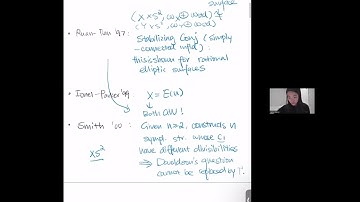 surface
(X × S², ω_X ⊕ ω_std) &
(Y × S², ω_Y ⊕ ω_std)
• Ruan-Tian '97: Stabilizing Conj (simply
-connected mfld):
this is shown for rational
elliptic surfaces
• Ionel-Parker '99 X = E(n)
↓
Both GW!
• Smith '00: Given n≥2, constructs n
sympl. str. where C₁
have different divisibilities
XS²
⇒ Donaldson's question
cannot be replaced by